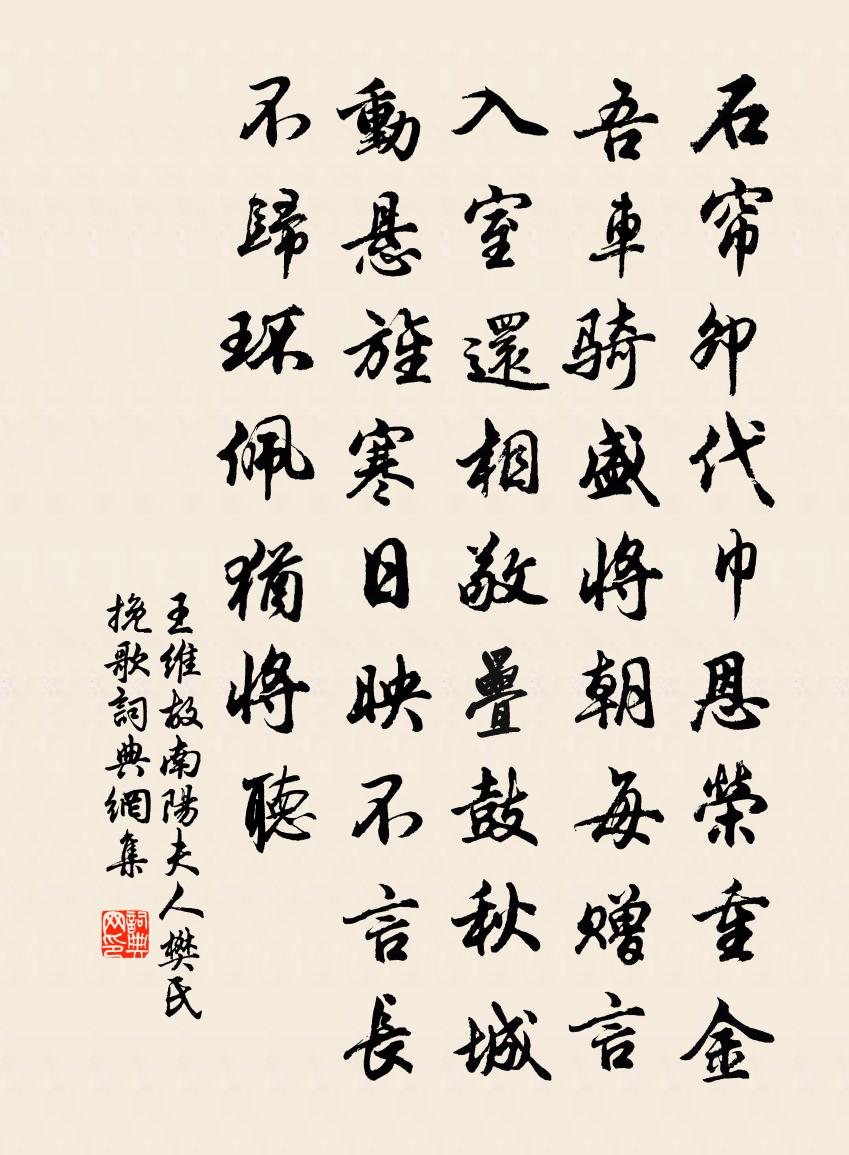 石帘卯代巾恩榮重金
吾車骑盛將朝每赠言
入室還相敬疊鼓秋城
動悬旌寒日映不言長
不歸环佩猶將聽
王維故南陽夫人樊氏
挽歌詞典網集
詞典
网印